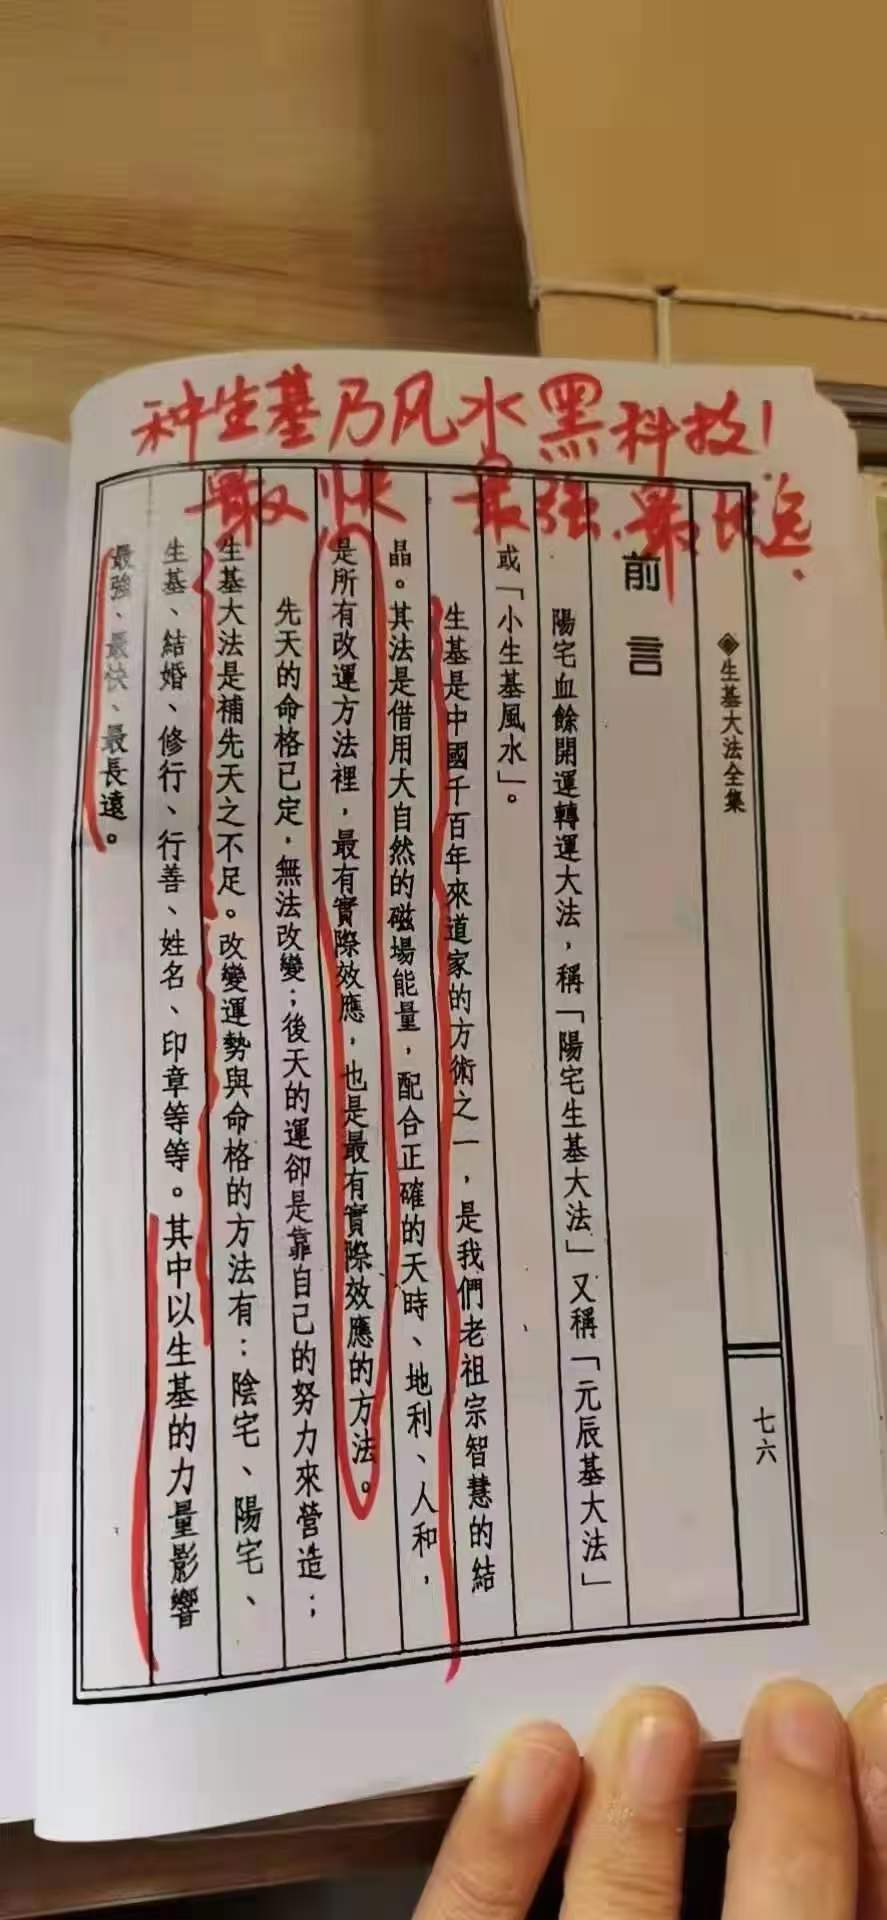 种生基乃风水黑科技!
最快 最强.最长远.
◈生基大法全集
七六
前言
陽宅血餘開運轉運大法，稱「陽宅生基大法」又稱「元辰基大法」
或「小生基風水」。
生基是中國千百年來道家的方術之一，是我們老祖宗智慧的結
晶。其法是借用大自然的磁場能量，配合正確的天時、地利、人和，
是所有改運方法裡，最有實際效應，也是最有實際效應的方法。
先天的命格已定，無法改變；後天的運卻是靠自己的努力來營造；
生基大法是補先天之不足。改變運勢與命格的方法有：陰宅、陽宅、
生基、結婚、修行、行善、姓名、印章等等。其中以生基的力量影響
最強、最快、最長遠。